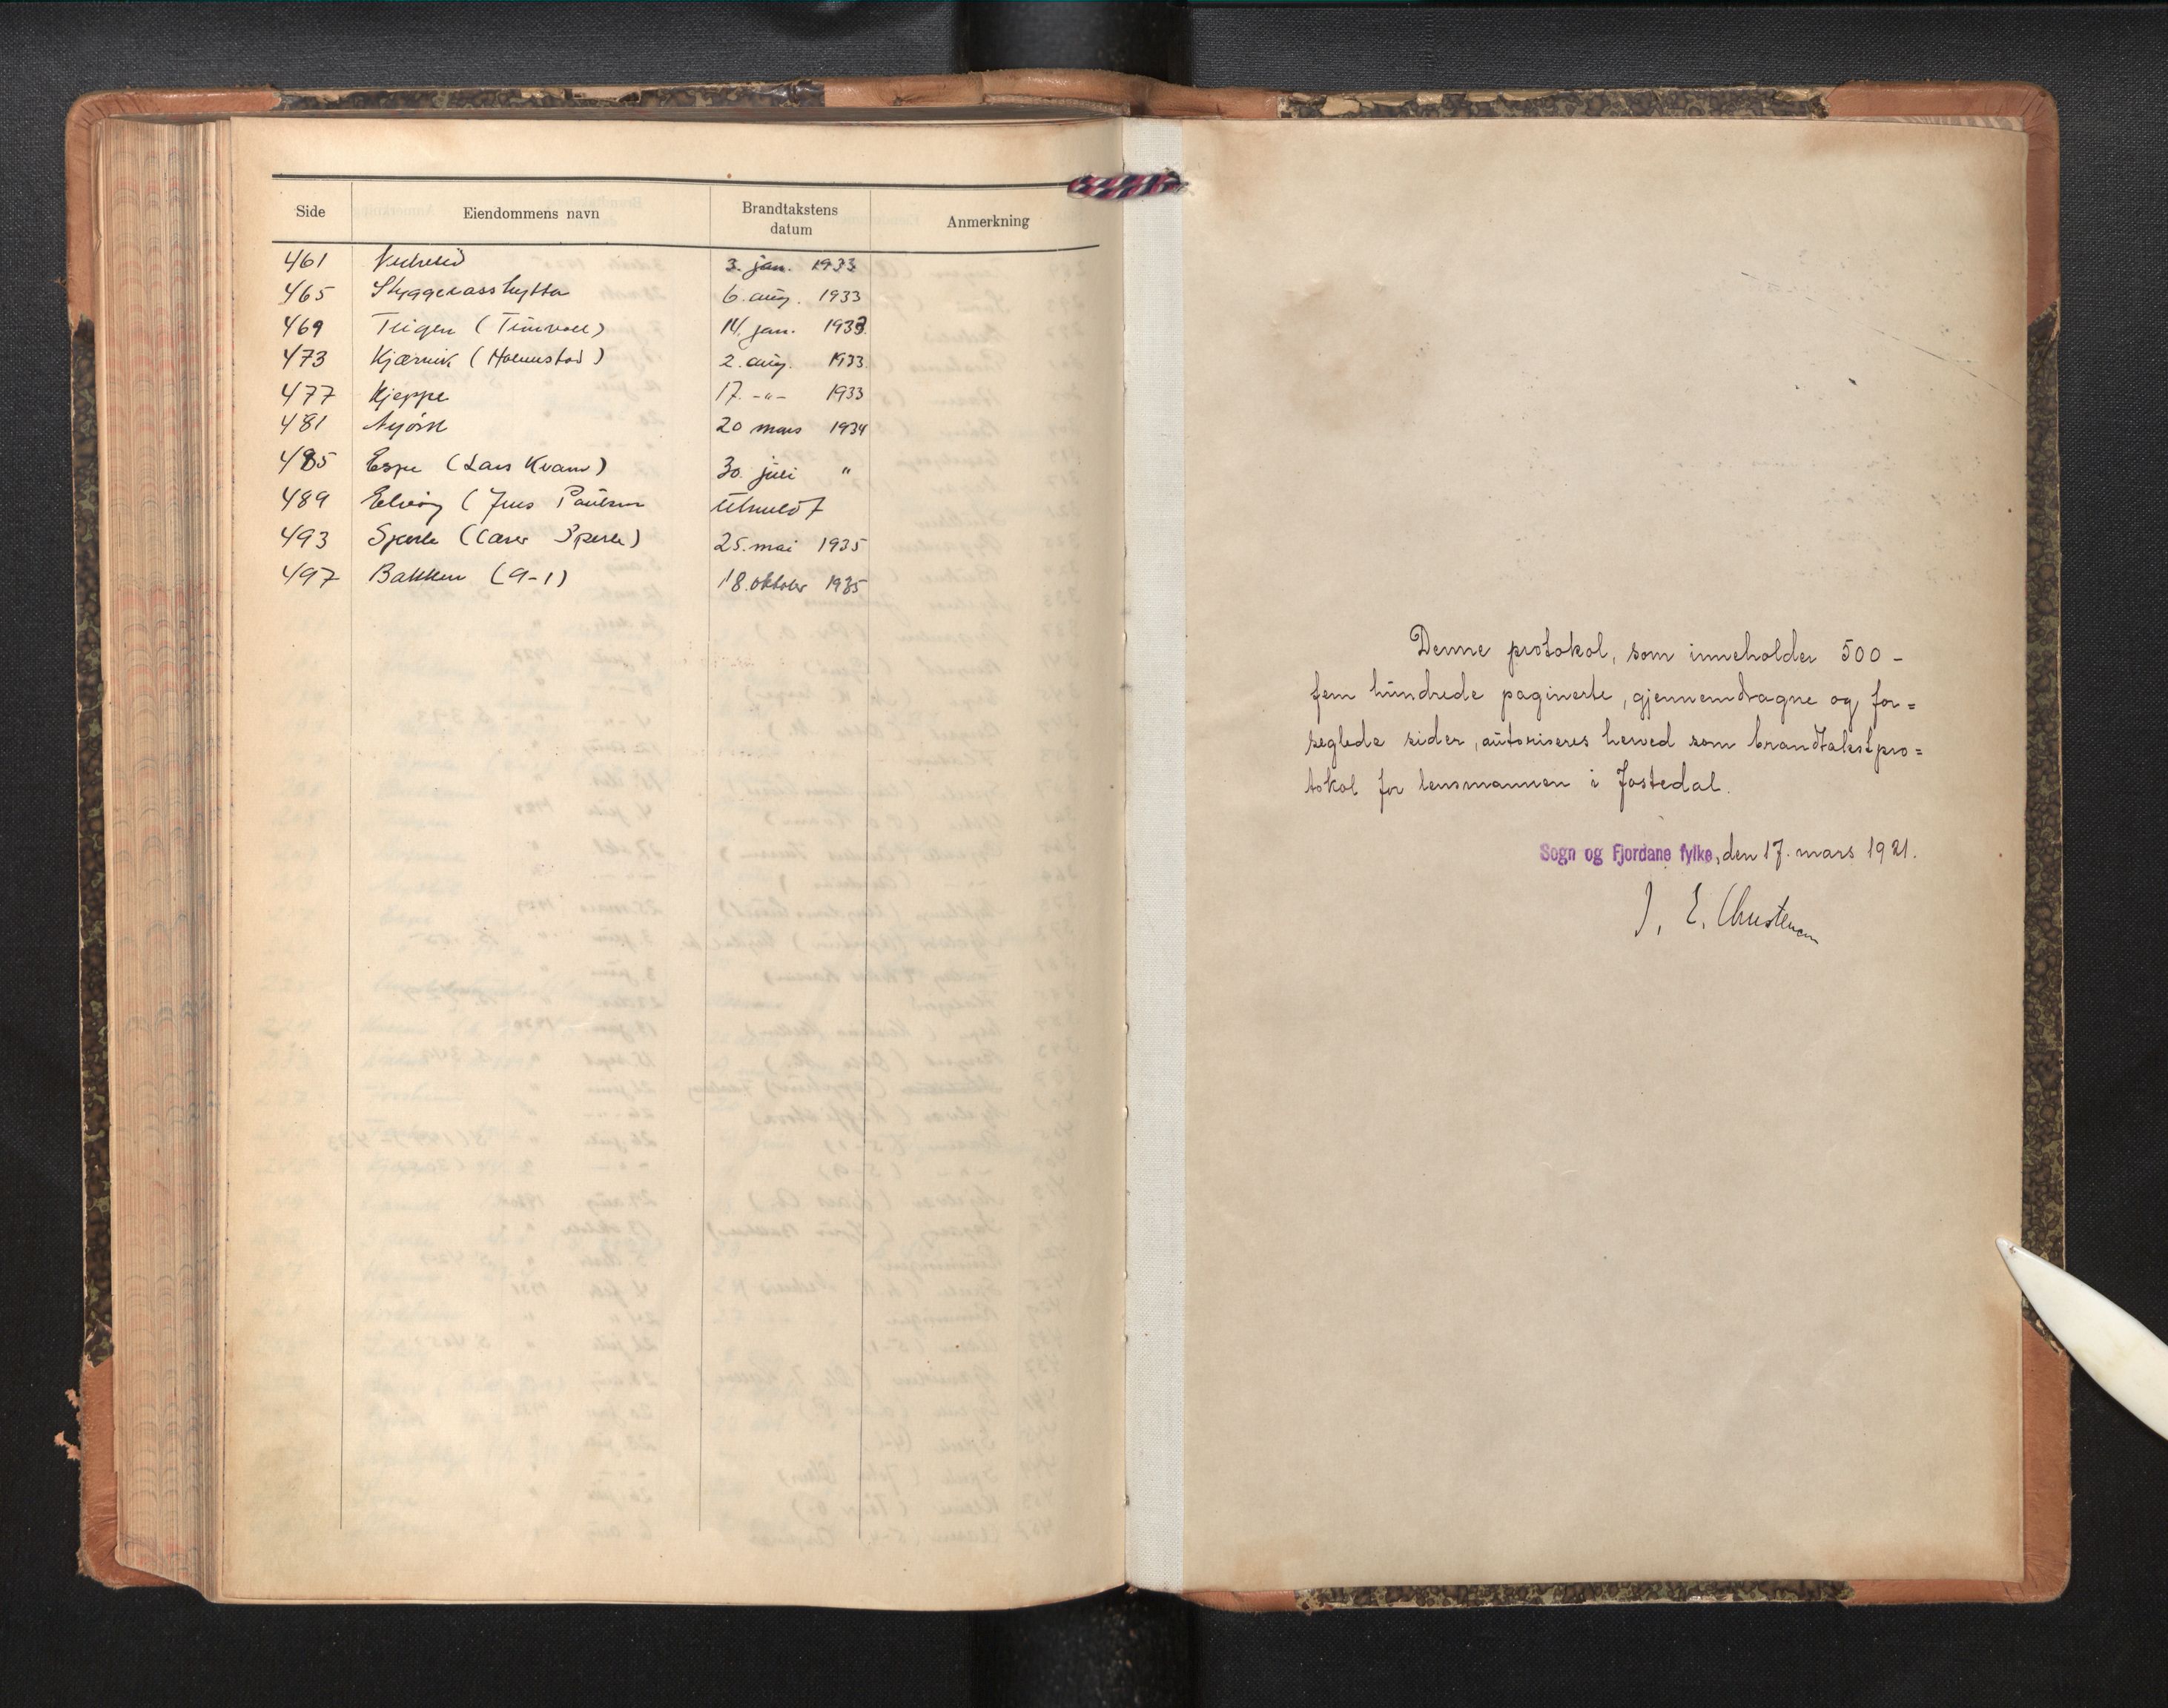 Side Eiendommens navn Brandtakstens datum Anmerkning
461 3. jan. 1933
465 6. aug. 1933
469 Teigen ( 14. jan. 1933
473 Kjærvik ( 2. aug. 1933
477 Kjeppe 17. -"- 1933
481 20 mars 1934
485 Espe (Lars Kvam) 30. juli "
489 (Jens Paulsen
493 Sperle ( Sperle) 25. mai 1935
497 Bakken (9-1) 18. oktober 1935
Denne protokol, som inneholder 500 -
fem hundrede paginerte, gjennemdragne og for=
seglede sider, autoriseres herved som brandtakstpro=
tokol for lensmannen i Jostedal.
Sogn og Fjordane fylke, den 17. mars 1921.
J. E. Christensen